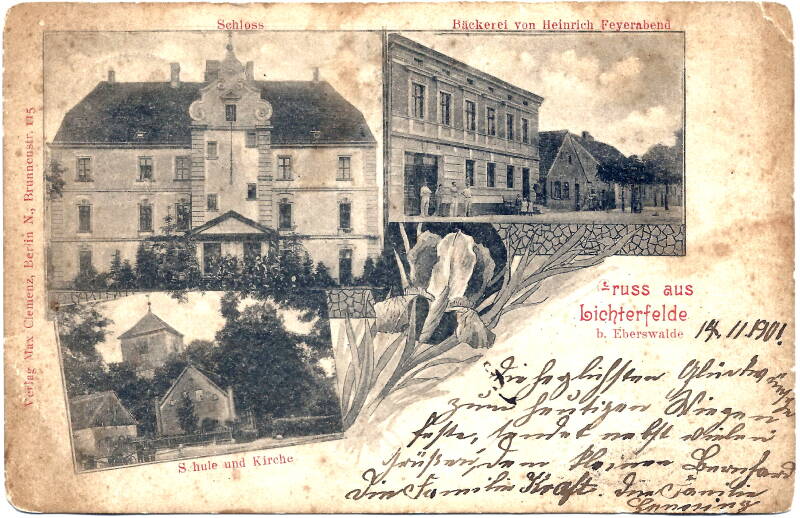 Schloss
Bäckerei von Heinrich Feyerabend
Verlag Max Clemenz, Berlin N., Brunnenstr. 115
Gruss aus
Lichterfelde
b. Eberswalde
14.11.1901.
Die herzlichsten Glückwünsche
zum heutigen Wiegen
feste, sendet nebst vielen
Grüßen, dem kleinen Bernhard
Die Familie Kraft. Die Familie
Schule und Kirche